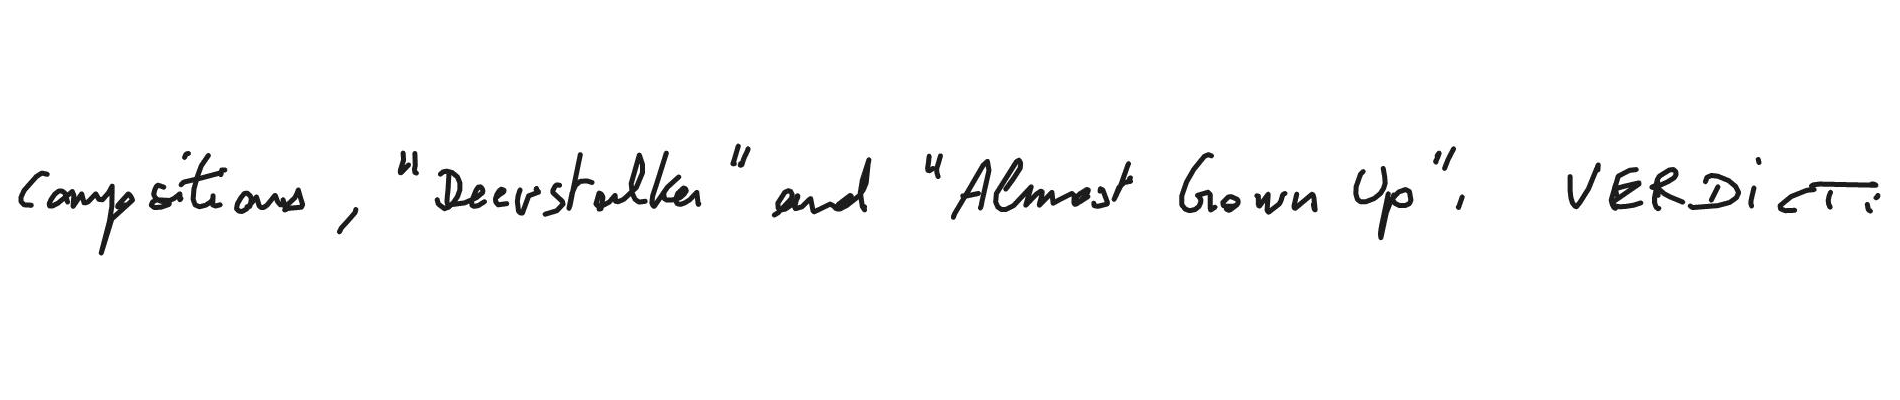 compositions, "Deerstalker" and "Almost Grown Up". VERDICT: